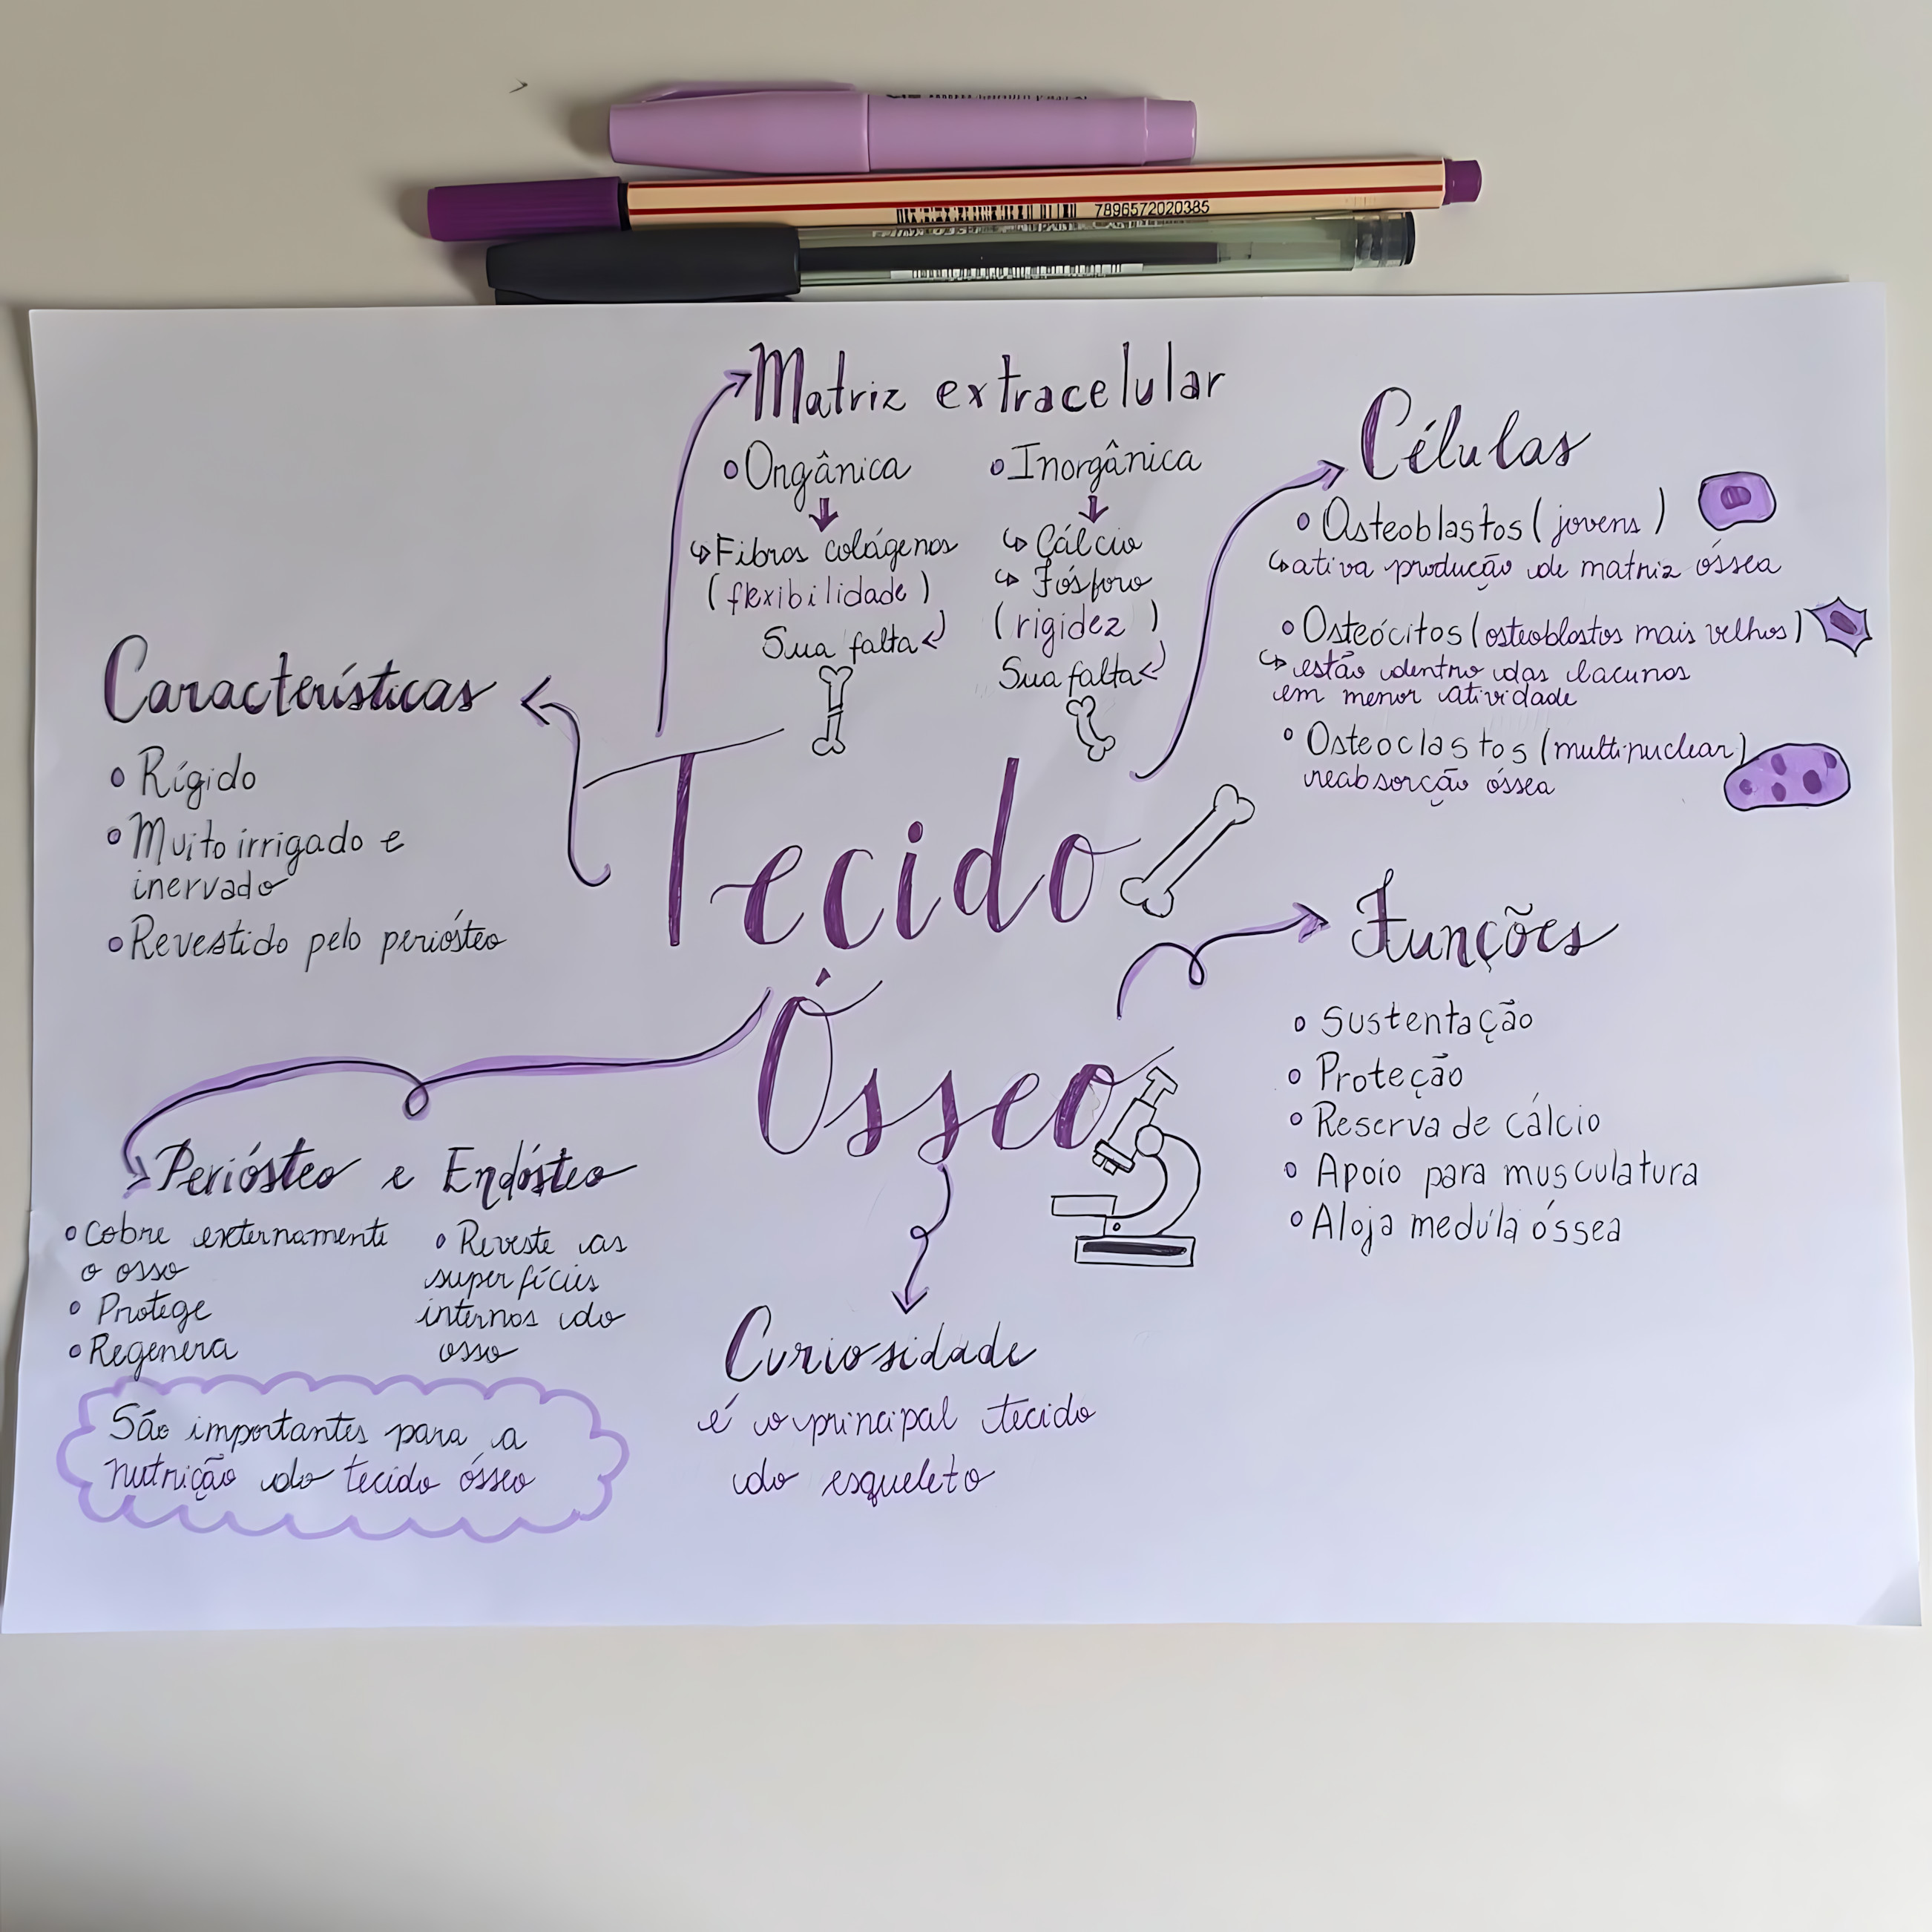 7896572020385
Matriz extracelular
Orgânica
Fibras colágenas
(flexibilidade)
Sua falta
Inorgânica
Cálcio
Fósforo
(rigidez)
Sua falta
Células
Osteoblastos (jovens)
ativa produção de matriz óssea
Osteócitos (osteoblastos mais velhos)
estão dentro das lacunas
em menor atividade
Osteoclastos (multinuclear)
reabsorção óssea
Características
Rígido
Muito irrigado e
inervado
Revestido pelo periósteo
Tecido
Ósseo
Funções
Sustentação
Proteção
Reserva de cálcio
Apoio para musculatura
Aloja medula óssea
Periósteo e Endósteo
Cobre externamente
o osso
Protege
Regenera
Reveste as
superfícies
internas do
osso
São importantes para a
nutrição do tecido ósseo
Curiosidade
é o principal tecido
do esqueleto